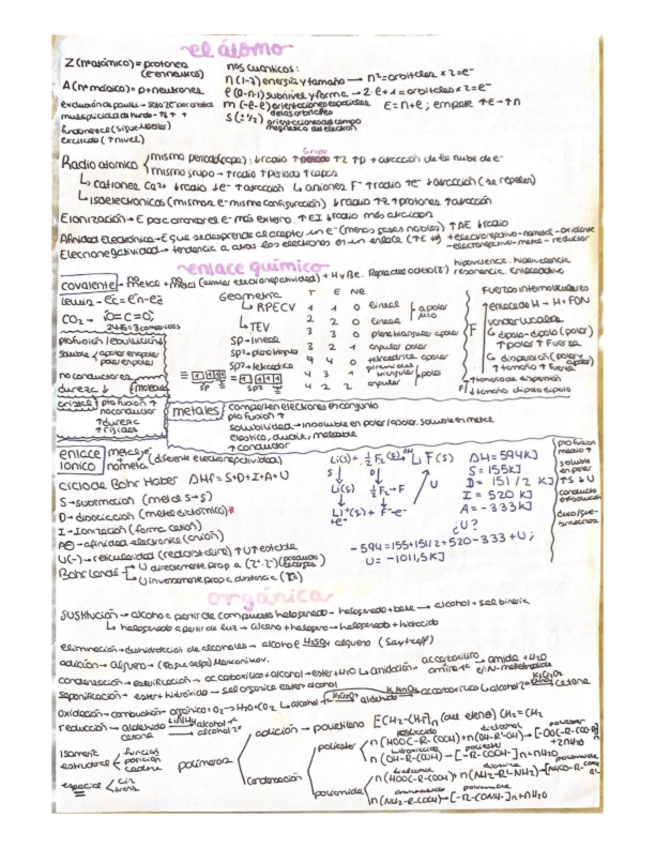 el átomo
Z (nº atómico) = protones
(e- en neutros)
A (nº másico) = p + neutrones
exclusión de paulis → solo 2e- por orbital
multiplicidad de hunds →
fundamental (sigue
excitado (↑nivel)
nos cuánticos:
n (1-7) energía y tamaño → n² = orbitales x 2 = e-
l (0-n-1) subnivel y forma → 2·l+1 = orbitales x 2 = e-
m (-l-l) orientaciones espaciales
de los orbitales
E = n+l ; empate ↑E → ↑n
s (±1/2) orientaciones del campo
magnético del electrón
Radio atómico
mismo periodo (capa): ↓radio ↑Z ↑p + atracción de la nube de e-
mismo grupo → ↑radio ↑periodo ↑capas
↳ cationes Ca2+ ↓radio ↓e- ↑atracción ↳ aniones F- ↑radio ↑e- ↓atracción (se repelen)
↳ isoelectrónicos (mismos e- misma configuración) ↓radio ↑Z ↑protones ↑atracción
E ionización → E para arrancar el e- más externo. ↑EI ↓radio más atracción
Afinidad Electrónica → E que se desprende al aceptar un e- (menos gases nobles) ↑AE ↓radio
Elecronegatividad → tendencia a atraer los electrones en un enlace
+ electronegativo - nometal - oxidante
- electronegativo - metal - reductor
enlace químico
hipovalencia. hipervalencia
covalente
(similar electronegatividad) + H y Be. Reglas del octeto
resonancia. Enlace dativo
Lewis → ec = en - ev
CO2 → O=C=O
pto fusión/ebullición ↓
soluble
apolar en apolar
polar en polar
no conductores
dureza ↓
(moléculas)
cristales
pto fusión ↑
no conductor
↑dureza
↑rígidas
Geometría
↳ RPECV
↳ TEV
Sp → lineal
Sp2 → plana triangular
Sp3 → tetraédrica
T E NE
2 2 0 lineal
3 3 0 plana triangular apolar
3 2 1 angular polar
4 4 0 tetraédrica apolar
4 3 1 piramidal triangular
4 2 2 angular
polar
Fuerzas intermoleculares
↑ enlace de H → H + FON
vander waals
↳ dipolo-dipolo (polar)
↑polar ↑Fuerza
↳ dispersión (polar y apolar)
↑tamaño ↑Fuerza
↑tamaño dispersión
↓tamaño dipolo dipolo
metales
comparten electrones en conjunto
pto fusión ↑
solubilidad → insoluble en polar/apolar. soluble en metal
elástico, dúctil, maleable
↑conductor
enlace
iónico
metal y
nometal
(diferente electronegatividad)
ciclo de Bohr Haber ΔHf = S+D+I+A+U
S → sublimación (metal s → g)
D → disociación (nometal diatómico)
I → Ionización (forma catión)
AE → afinidad electrónica (anión)
U(-) → reticularidad (red cristalina) ↑U ↑estable
Bohr Landé
U directamente prop a (Z+·Z-) (producto de cargas)
U inversamente prop a distancia
Li(s) + 1/2 F2 (g) → Li F (s)
S D
Li(g) 1/2 F2 → F
Li+(g) + F- e-
+e-
U
ΔH = 594KJ
S = 155KJ
D = 151/2 KJ
I = 520 KJ
A = -333KJ
¿U?
-594 = 155+151/2+520-333+U ;
U = -1011,5KJ
pto fusión
medio ↑
soluble
en polar
↑S ↓U
orgánica
sustitución → alcohol a partir de compuesto halogenado → halogenado + base → alcohol + sal binaria
↳ halogenado a partir de luz → alcano + halógeno → halogenado + hidrácido
eliminación → deshidratación de alcoholes → alcohol H2SO4 alqueno (Saytzeff)
adición → alqueno → Markonikov.
condensación → esterificación → ac carboxílico + alcohol → ester + H2O ↳ amidación → ac carboxílico + amina → amida + H2O
saponificación → ester + hidróxido → sal orgánica ester alcohol
oxidación → combustión → orgánico + O2 → H2O + CO2 ↳ alcohol 1º K2Cr2O7 aldehído KMnO4 ac carboxílico ↳ alcohol 2º K2Cr2O7 cetona
reducción → aldehído LiAlH4 alcohol 1º
cetona → alcohol 2º
Isomería
estructural
función
posición
cadena
espacial
cis
trans
polímeros
adición → polietileno
(del eteno) CH2=CH2
condensación
poliéster
n(HOOC-R-COOH) + n(OH-R'-OH) →
n(OH-R-COOH) → [-R-COO-]n + nH2O
poliamida
n(HOOC-R-COOH) + n(NH2-R'-NH2) →
n(NH2-R-COOH) → [-R-CONH-]n + nH2O